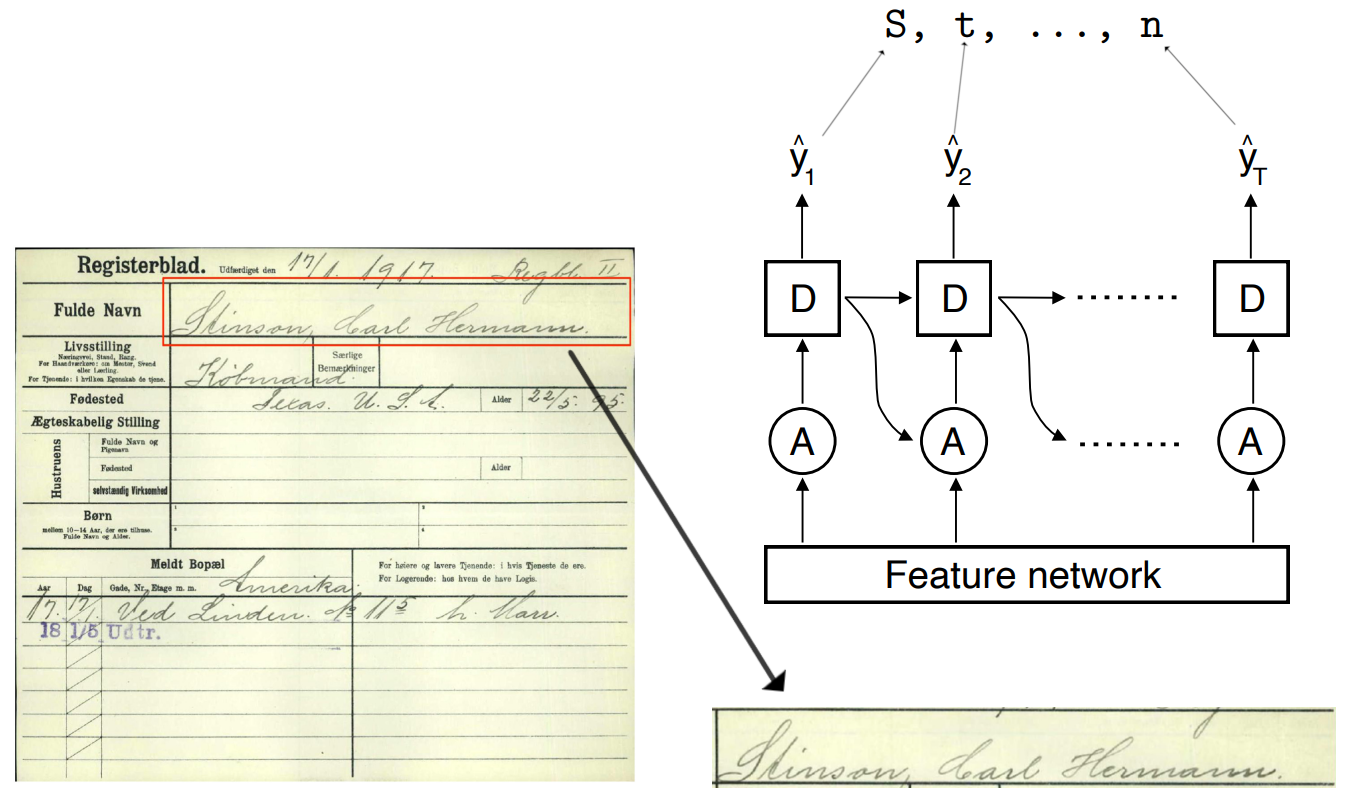 S, t, ..., n
ŷ1 ŷ2 ŷT
D D D
A A A
Feature network
Registerblad. Udfærdiget den 17/1. 1917. Regbl. II
Fulde Navn Stinson, Carl Hermann.
Livsstilling
Næringsvei, Stand, Rang.
For Haandværkere: om Mester, Svend
eller Lærling.
For Tjenende: i hvilken Egenskab de tjene.
Købmand.
Særlige
Bemærkninger
Fødested Texas. U. S. A. Alder 22/5. 95.
Ægteskabelig Stilling
Hustruens
Fulde Navn og
Pigenavn
Fødested Alder
selvstændig Virksomhed
Børn
mellem 10—14 Aar, der ere tilhuse.
Fulde Navn og Alder.
Meldt Bopæl
For høiere og lavere Tjenende: i hvis Tjeneste de ere.
For Logerende: hos hvem de have Logis.
Aar Dag Gade, Nr., Etage m. m. Amerika
17. 17/1. Ved Linden. No 11 5 h.
18 1/5 Udtr.
Stinson, Carl Hermann.